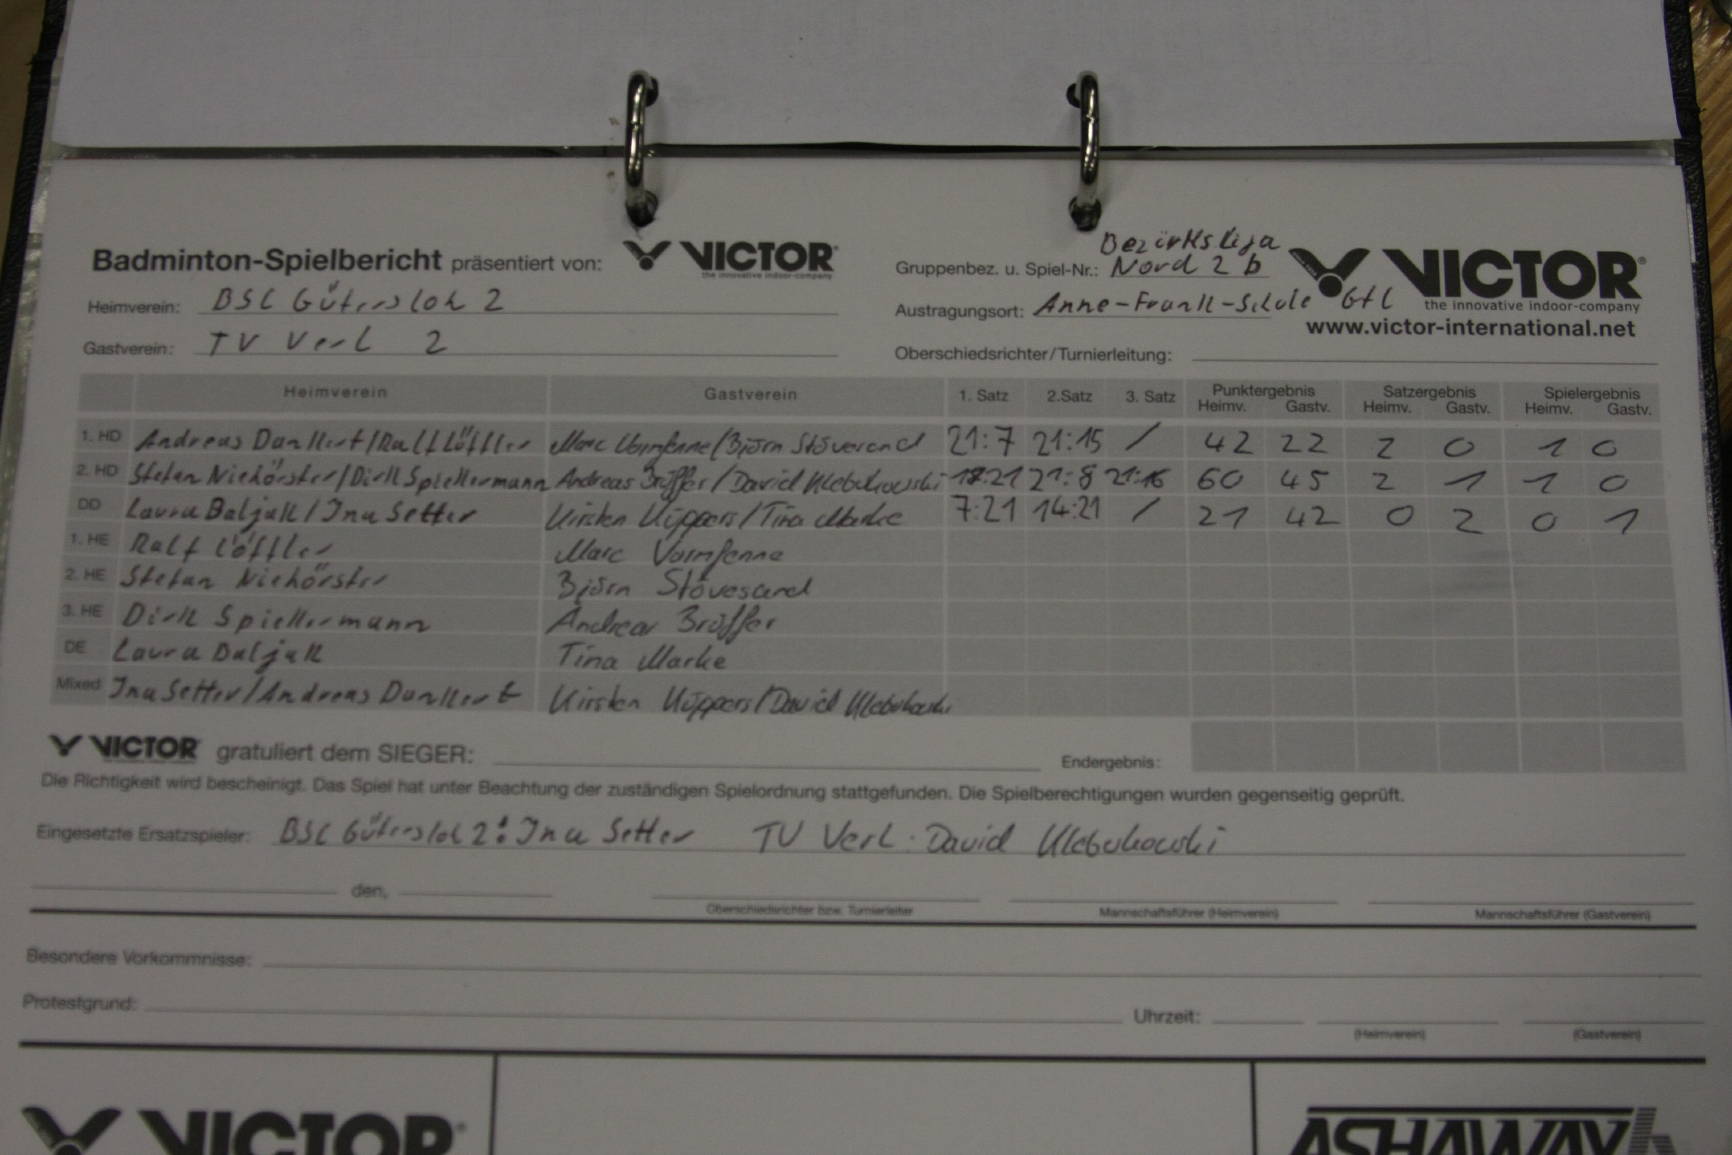 Badminton-Spielbericht präsentiert von: VICTOR® the innovative indoor-company
Bezirksliga
Gruppenbez. u. Spiel-Nr.: Nord 2 b
VICTOR®
the innovative indoor-company
www.victor-international.net
Heimverein: BSC Gütersloh 2
Austragungsort: Anne-Frank-Schule Gtl
Gastverein: TV Verl 2
Oberschiedsrichter/Turnierleitung:
Heimverein Gastverein 1. Satz 2.Satz 3. Satz Punktergebnis Satzergebnis Spielergebnis
Heimv. Gastv. Heimv. Gastv. Heimv. Gastv.
1. HD Andreas Dankert/Ralf Löffler Marc Vormfenne/Björn Stövesand 21:7 21:15 / 42 22 2 0 1 0
2. HD Stefan Niehörster/Dirk Spiekermann Andreas Brüffer/David Klebukowski 18:21 21:8 21:16 60 45 2 1 1 0
DD Laura Daljak/Ina Setter Kirsten Küppers/Tina Marke 7:21 14:21 / 21 42 0 2 0 1
1. HE Ralf Löffler Marc Vormfenne
2. HE Stefan Niehörster Björn Stövesand
3. HE Dirk Spiekermann Andreas Brüffer
DE Laura Daljak Tina Marke
Mixed Ina Setter/Andreas Dankert Kirsten Küppers/David Klebukowski
VICTOR® gratuliert dem SIEGER: Endergebnis:
Die Richtigkeit wird bescheinigt. Das Spiel hat unter Beachtung der zuständigen Spielordnung stattgefunden. Die Spielberechtigungen wurden gegenseitig geprüft.
Eingesetzte Ersatzspieler: BSC Gütersloh 2: Ina Setter TV Verl: David Klebukowski
den,
Oberschiedsrichter bzw. Turnierleiter Mannschaftsführer (Heimverein) Mannschaftsführer (Gastverein)
Besondere Vorkommnisse:
Protestgrund: Uhrzeit:
(Heimverein) (Gastverein)
VICTOR® ASHAWAY